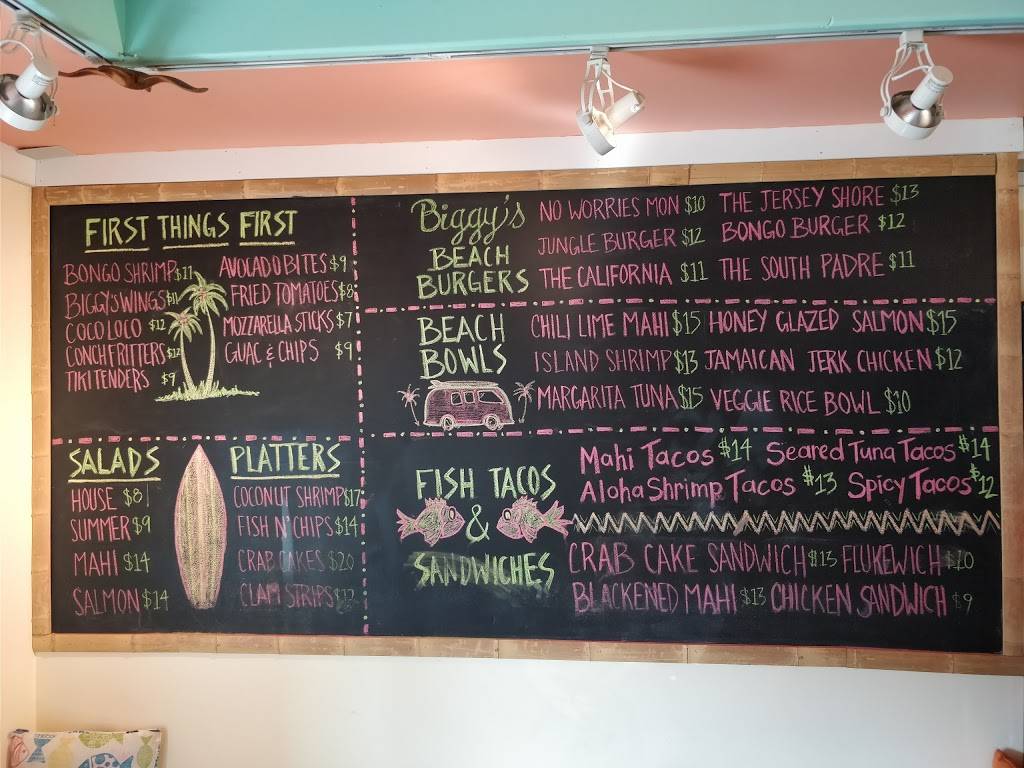 FIRST THINGS FIRST
BONGO SHRIMP $11
BIGGY'S WINGS $11
COCO LOCO $12
CONCH FRITTERS $12
TIKI TENDERS $9
AVOCADO BITES $9
FRIED TOMATOES $8
MOZZARELLA STICKS $7
GUAC & CHIPS $9
SALADS
HOUSE $8
SUMMER $9
MAHI $14
SALMON $14
PLATTERS
COCONUT SHRIMP $17
FISH N' CHIPS $14
CRAB CAKES $20
CLAM STRIPS
Biggy's
BEACH
BURGERS
NO WORRIES MON $10 THE JERSEY SHORE $13
JUNGLE BURGER $12 BONGO BURGER $12
THE CALIFORNIA $11 THE SOUTH PADRE $11
BEACH
BOWLS
CHILI LIME MAHI $15 HONEY GLAZED SALMON $15
ISLAND SHRIMP $13 JAMAICAN JERK CHICKEN $12
MARGARITA TUNA $15 VEGGIE RICE BOWL $10
FISH TACOS
&
SANDWICHES
Mahi Tacos $14 Seared Tuna Tacos $14
Aloha Shrimp Tacos $13 Spicy Tacos $12
CRAB CAKE SANDWICH $13 FLUKEWICH $10
BLACKENED MAHI $13 CHICKEN SANDWICH $9